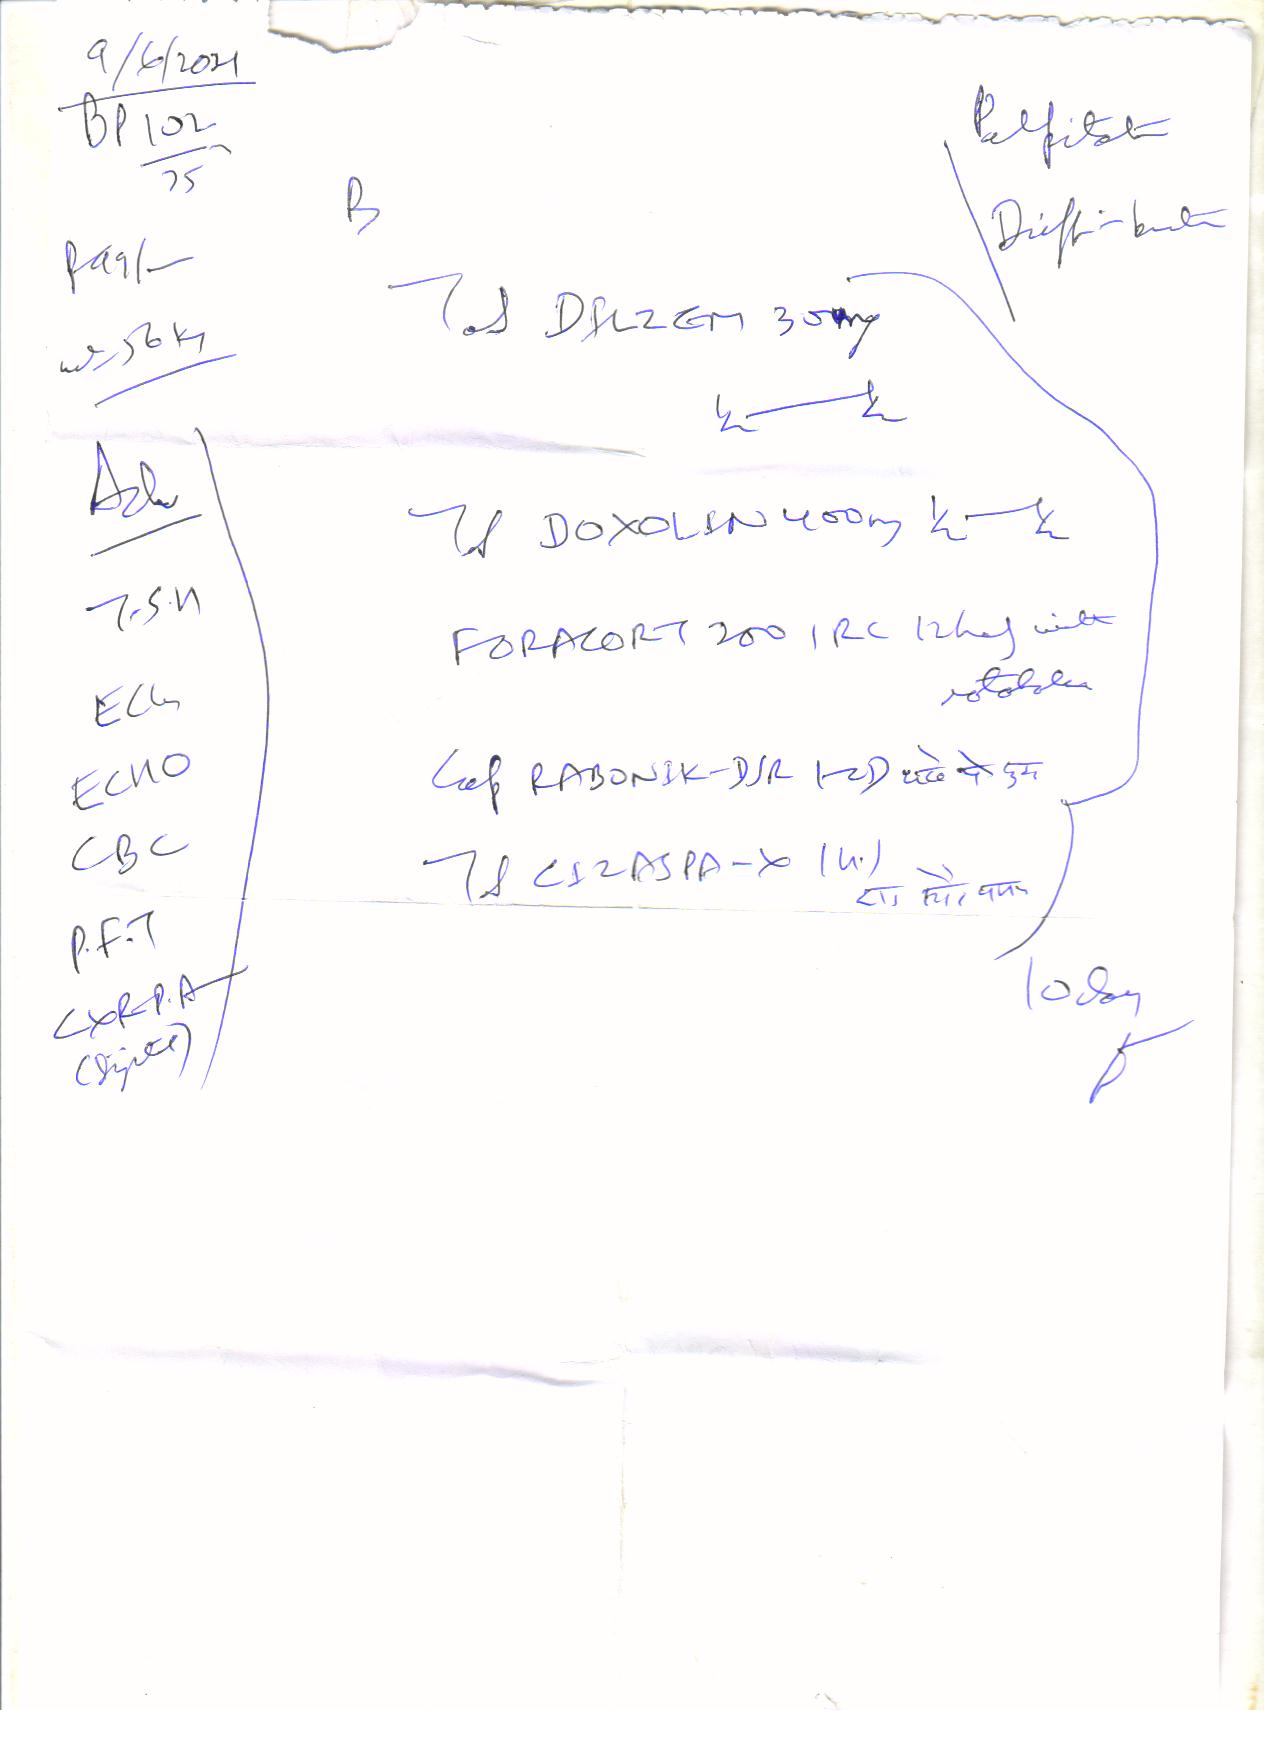 9/6/2021
BP 102
75
P 99/-
wt 56 Kg
Adv
T.S.H
ECG
ECHO
CBC
P.F.T
CXR-P.A
(Digital)
Palpitation
R
Tab DILZEM 30mg
½ — ½
Tab DOXOLIN 400mg ½ — ½
FORACORT 200 1RC 12hrly with
rotahaler
Cap RABONIK-DSR 1-2D
Tab CIZASPA-X (1)
10 day